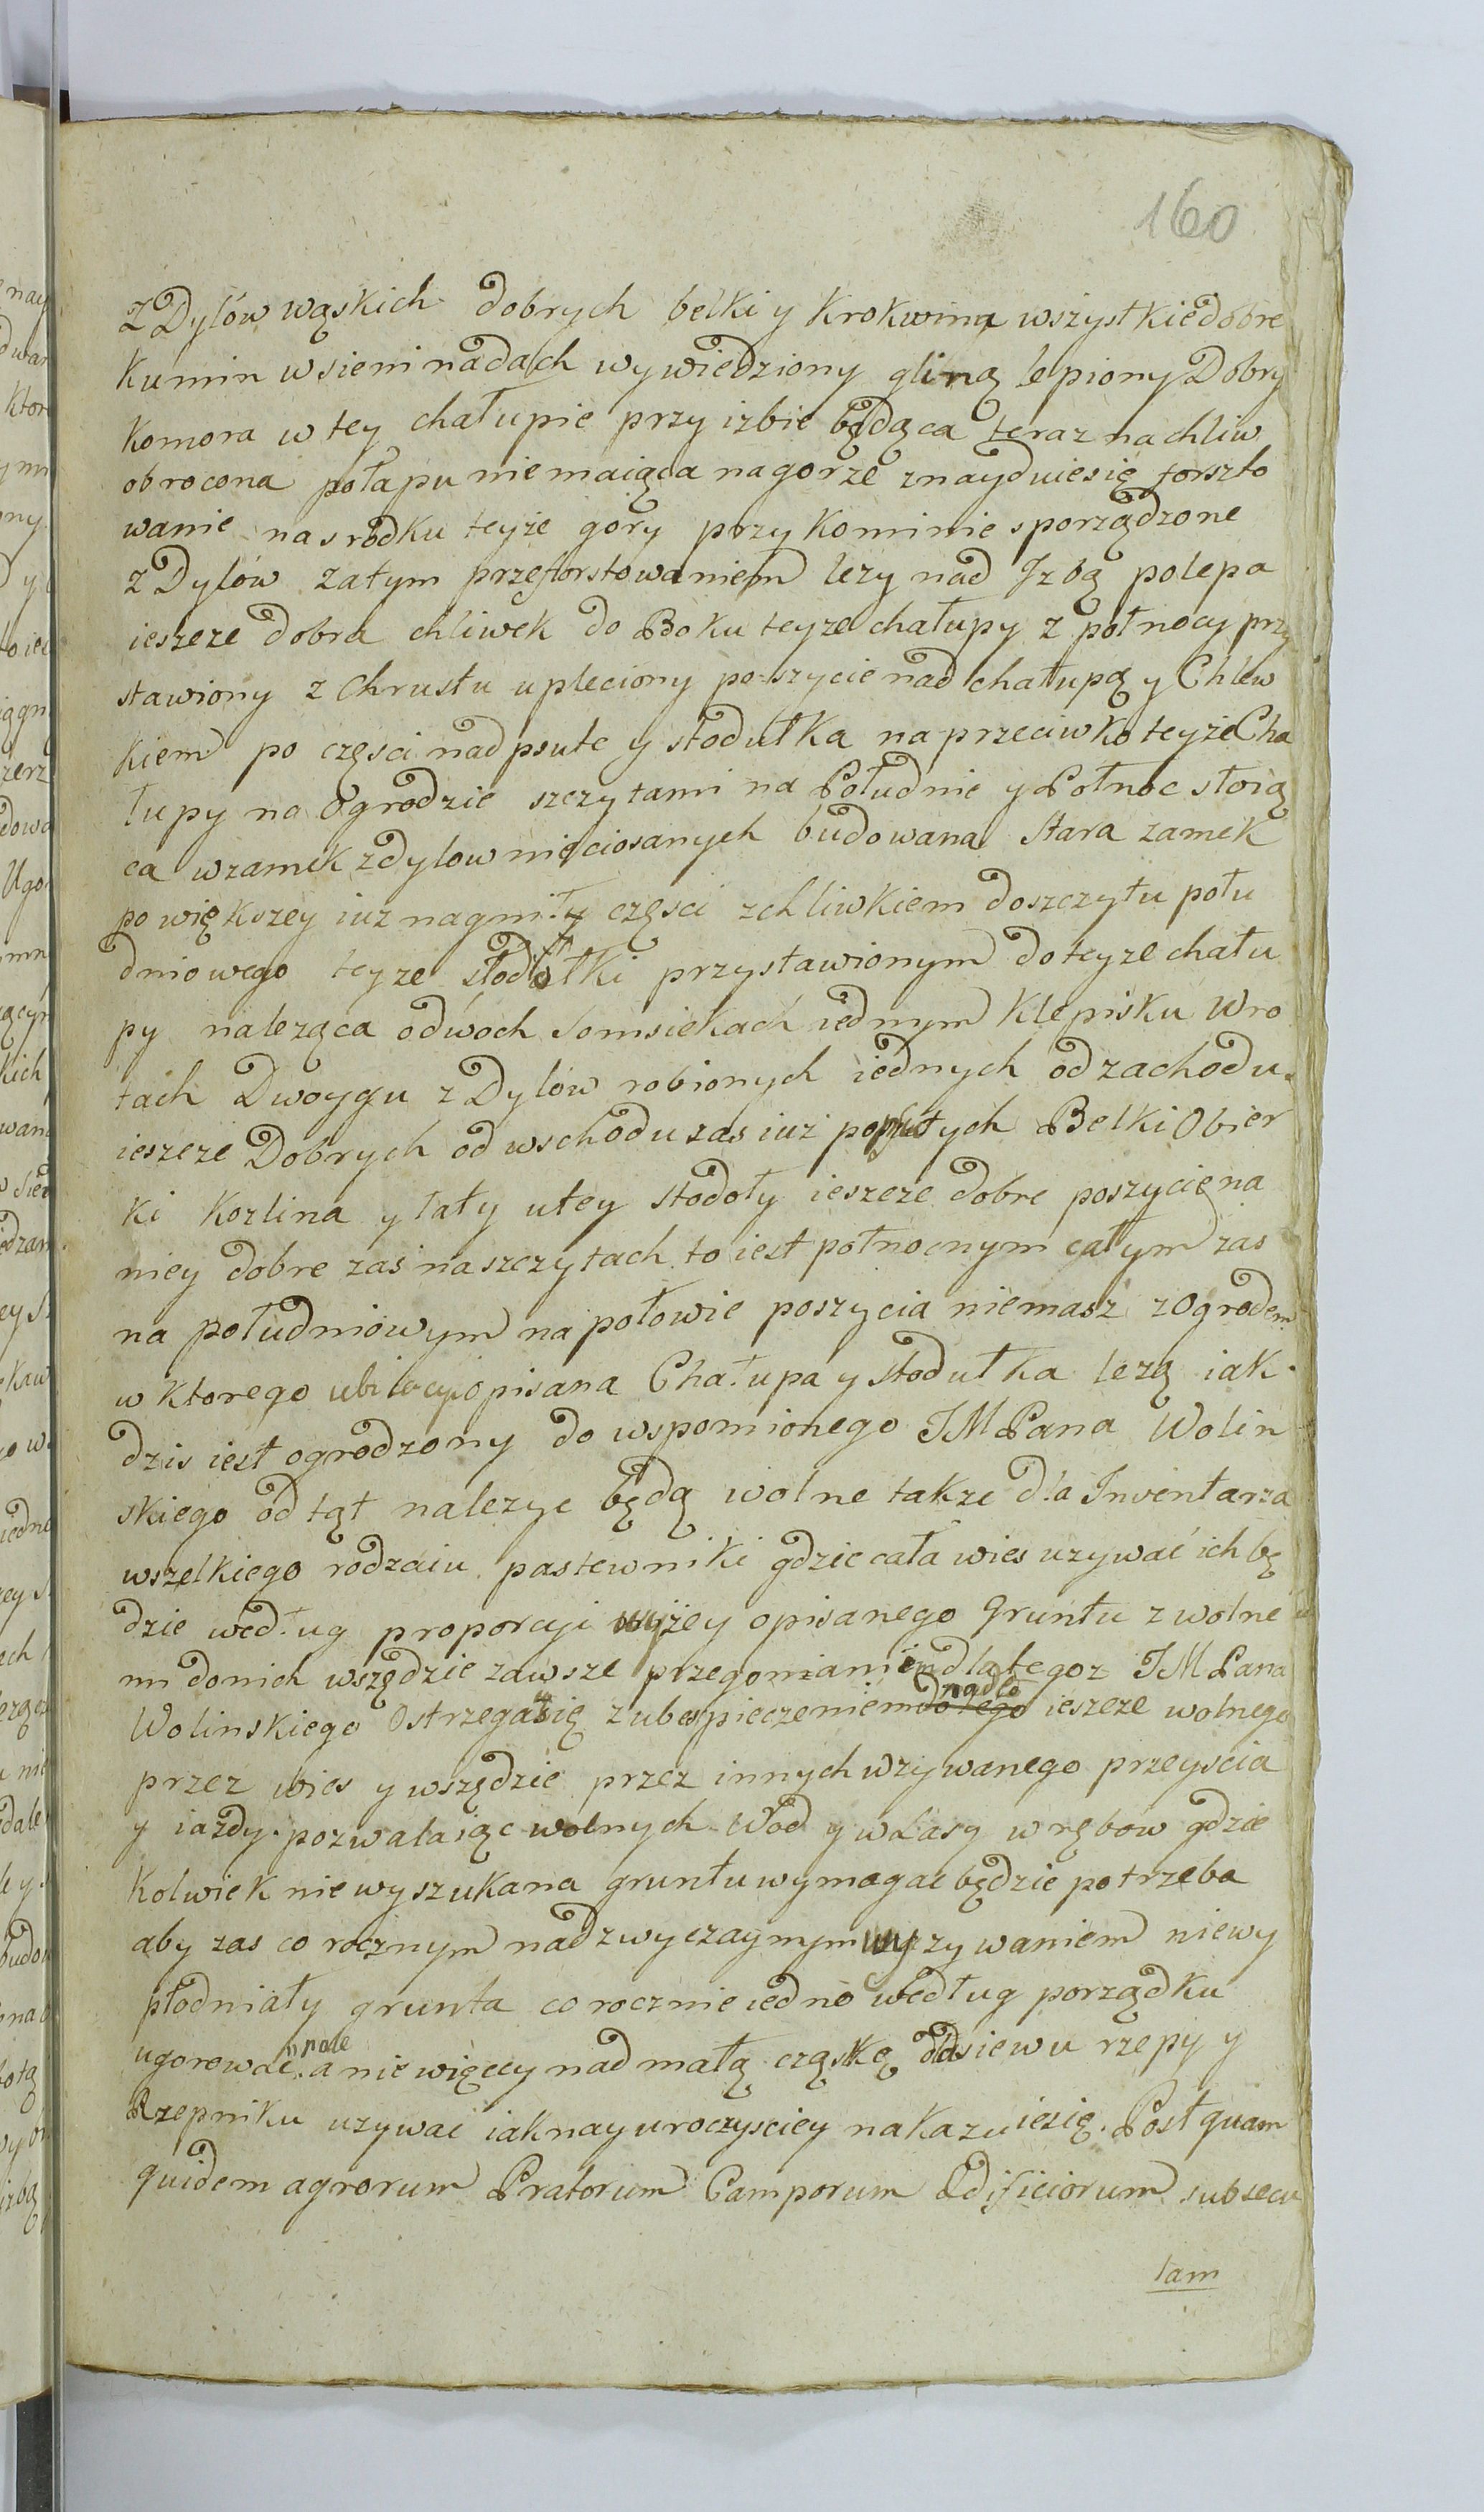 160
z Dylów wąskich dobrych belki y Krokwina wszystkie dobre
Kumin w sieni na dach wywiedziony gliną lepiony Dobry
Komora w tey chałupie przy izbie będąca teraz na chliw
obrocona połapu nie maiąca na gorze znayduie się forszto
wanie na srodku teyże góry przy Kominie sporządzone
z Dylów za tym przeforstowaniem leży nad Izbą polepa
ieszcze dobra chliwek do Boku teyze chałupy z połnocy przy
stawiony z Chrustu upleciony poszycie nad chałupą y Chlew
kiem po częsci nadpsute y stodułka na przeciwko teyże Cha
łupy na Ogrodzie szczytami na Południe y Połnoc stoią
ca w zamek z dylow nieciosanych budowana Stara zamek
po większey iuz nagniły częsci z chliwkiem do szczytu połu
dniowego teyze stodołki przystawionym do teyze chału
py naleząca o dwoch Somsiekach iednym Klepisku Wro
tach Dwoygu z Dylów robionych iednych od zachodu
ieszcze Dobrych od wschodu zas iuż popsutych Belki Obier
ki Kozlina y łaty u tey stodoły ieszcze dobre poszycie na
niey dobre zaś na szczytach to iest połnocnym całym zas
na południowym na połowie poszycia niemasz z Ogrodem
w ktorego ubitacyi opisana Chałupa y stodułka lezą iak
dzis iest ogrodzony do wspomionego JM Pana Wolin
skiego od tąt nalezyc będą wolne takze dla Inwentarza
wszelkiego rodzaiu pastewniki gdzie cała wies uzywać ich bę
dzie według proporcyi wyżey opisanego Gruntu z wolne
mi do nich wszędzie zawsze przegonianiem dla tegoz JM Pana
Wolinskiego Ostrzega się z ubespieczeniem nadto ieszcze wolnego
przez wies y wszędzie przez innych wzywanego przeyscia
y iazdy pozwalaiąc wolnych Wod y w Lasy wrębow gdzie
kolwiek nie wyszukana gruntu wymagac będzie potrzeba
aby zas co rocznym nadzwyczaynym uzywaniem niewy
płodniały grunta co rocznie iedno według porządku
ugorowac pole a nie więcey nad małą cząskę dla siewu rzepy y
Rzepniku uzywać iak nayuroczysciey nakazuie się. Postquam
quidem agrorum Pratorum Camporum Ædificiorum subsecu
tam